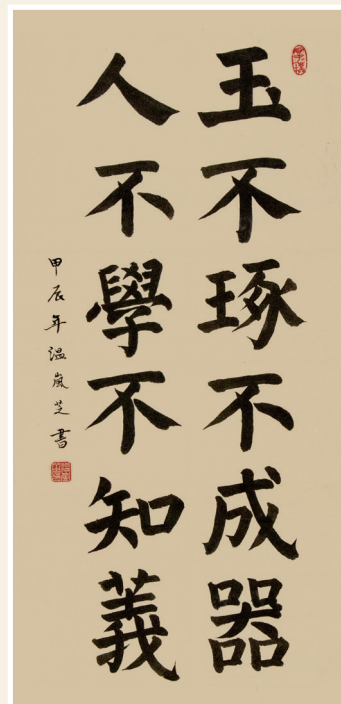 玉不琢不成器
人不學不知義
甲辰年溫嵐芝書